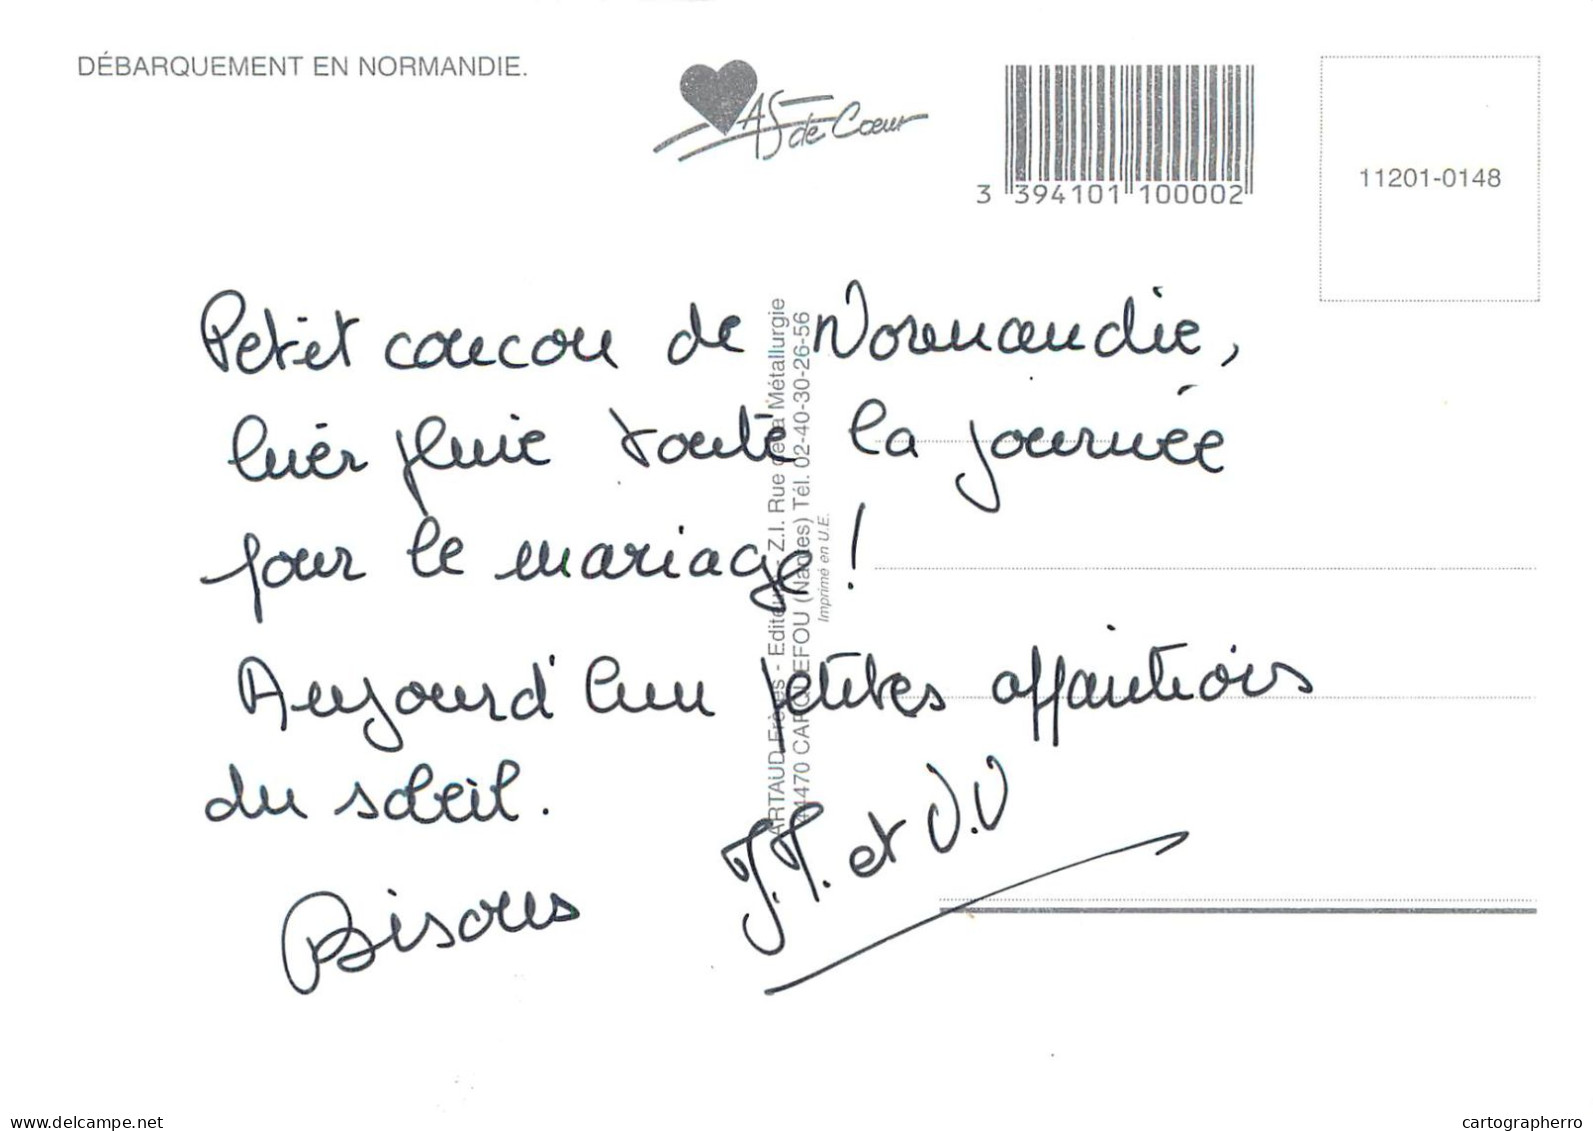 DÉBARQUEMENT EN NORMANDIE.
As de Cœur
3 394101 100002
11201-0148
Petit coucou de Normandie,
hier pluie toute la journée
pour le mariage !
Aujourd'hui petites apparitions
du soleil.
Bisous
J.P. et V.V
ARTAUD Frères - Editeurs - Z.I. Rue de la Métallurgie
44470 CARQUEFOU (Nantes) Tél. 02-40-30-26-56
Imprimé en U.E.
delcampe.net
cartographerro